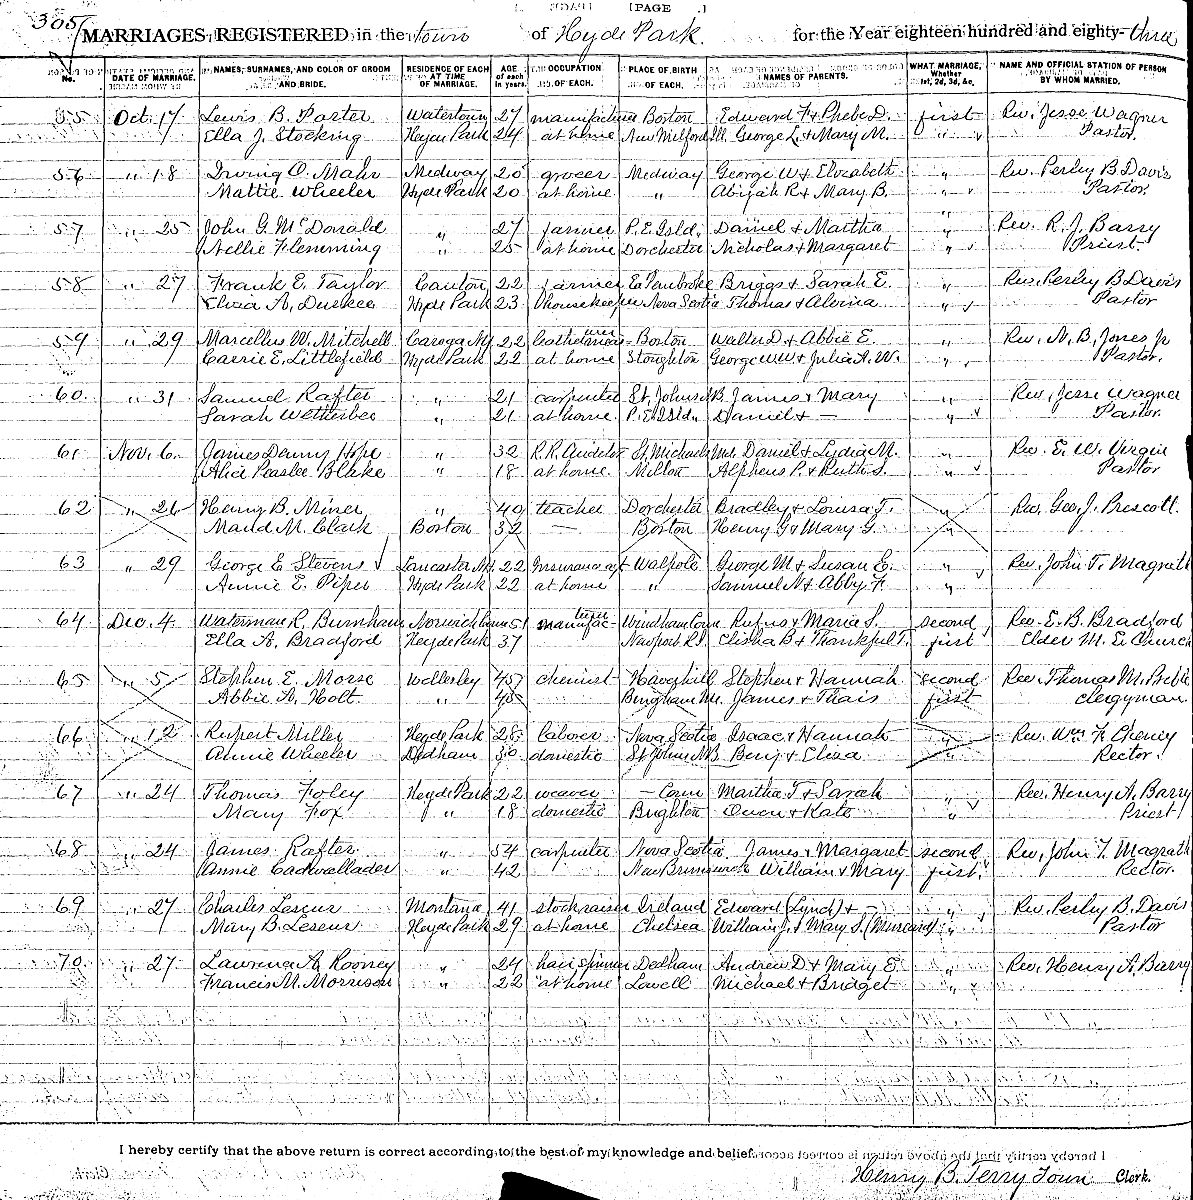 305
[PAGE .]
MARRIAGES REGISTERED in the town of Hyde Park. for the Year eighteen hundred and eighty-three
No. DATE OF MARRIAGE. NAMES, SURNAMES, AND COLOR OF GROOM AND BRIDE. RESIDENCE OF EACH AT TIME OF MARRIAGE. AGE of each in years. OCCUPATION OF EACH. PLACE OF BIRTH OF EACH. NAMES OF PARENTS. WHAT MARRIAGE, Whether 1st, 2d, 3d, &c. NAME AND OFFICIAL STATION OF PERSON BY WHOM MARRIED.
55 Oct. 17 Lewis B. Porter Watertown 27 manufacturer Boston Edward F & Phebe D. first Rev. Jesse Wagner
Ella J. Stocking Hyde Park 24 at home New Milford George L. & Mary M. " Pastor.
56 " 18 Irving O. Mahr Medway 25 grocer Medway George W & Elizabeth " Rev. Perley B. Davis
Mattie Wheeler Hyde Park 20 at home " Abijah R & Mary B. " Pastor.
57 " 25 John G. McDonald " 27 farmer P. E. Isld. Daniel & Martha " Rev. R. J. Barry
Nellie Flemming " 25 at home Dorchester Nicholas & Margaret " Priest
58 " 27 Frank E. Taylor Canton 22 farmer E. Pembroke Briggs & Sarah E. " Rev. Perley B Davis
Eliza A. Durkee Hyde Park 23 housekeeper Nova Scotia Thomas & Alvina " Pastor
59 " 29 Marcellus W. Mitchell Caroga N.Y 22 Boston Walter D. & Abbie E. " Rev. N. B. Jones Jr
Carrie E. Littlefield Hyde Park 22 at home Stoughton George W & Julia A. W. " Pastor.
60 " 31 Samuel Rafter " 21 carpenter St. Johns N.B James & Mary " Rev. Jesse Wagner
Sarah Wetherbee " 21 at home P. E. Isld. Daniel & — " Pastor.
61 Nov. 6. James Denny Hope " 32 St. Michaels Md. Daniel & Lydia M. " Rev. E. W. Virgin
Alice Peaslee Blake " 18 at home Milton Alpheus P. & Ruth S. " Pastor
62 " 26 Henry B. Miner " 49 teacher Dorchester Bradley & Louisa T. " Rev. Geo. J. Prescott.
Maud M. Clark Boston 32 — Boston Henry G & Mary G. "
63 " 29 George E Stevens Lancaster N.H. 22 Insurance agt Walpole George M & Susan E. " Rev. John T. Magrath
Annie E. Piper Hyde Park 22 at home " Samuel N & Abby F. "
64 Dec. 4. Waterman R. Burnham Norwich Conn 51 manufacturer Windham Conn Rufus & Maria S. second Rev. E. B. Bradford
Ella A. Bradford Hyde Park 37 Newport R.I. Elisha B & Thankful T. first Elder M. E. Church
65 " 5 Stephen E. Morse Wellesley 45 chemist Haverhill Stephen & Hannah second Rev. Thomas M. Preble
Abbie A. Holt. " 45 Bingham Me. James & Thais first Clergyman
66 " 12 Rupert Miller Hyde Park 28 laborer Nova Scotia Isaac & Hannah " Rev. Wm. F. Cheney
Annie Wheeler Dedham 30 domestic St Johns N.B Benj & Eliza " Rector.
67 " 24 Thomas Foley Hyde Park 22 weaver — Conn Martha T & Sarah " Rev. Henry A. Barry
Mary Fox " 18 domestic Brighton Owen & Kate " Priest
68 " 24 James Rafter " 54 carpenter Nova Scotia James & Margaret second Rev. John T. Magrath
Annie Cadwallader " 42 New Brunswick William & Mary first Rector.
69 " 27 Charles Leseur Montana 41 stock raiser Ireland Edward (Lynd) & — " Rev. Perley B. Davis
Mary B. Leseur Hyde Park 29 at home Chelsea William J. & Mary S. " Pastor
70 " 27 Lawrence A. Rooney " 24 hair spinner Dedham Andrew D & Mary E. " Rev. Henry A. Barry
Francis M. Morrison " 22 "at home" Lowell Michael & Bridget "
I hereby certify that the above return is correct according to the best of my knowledge and belief.
Henry B. Terry Town Clerk.